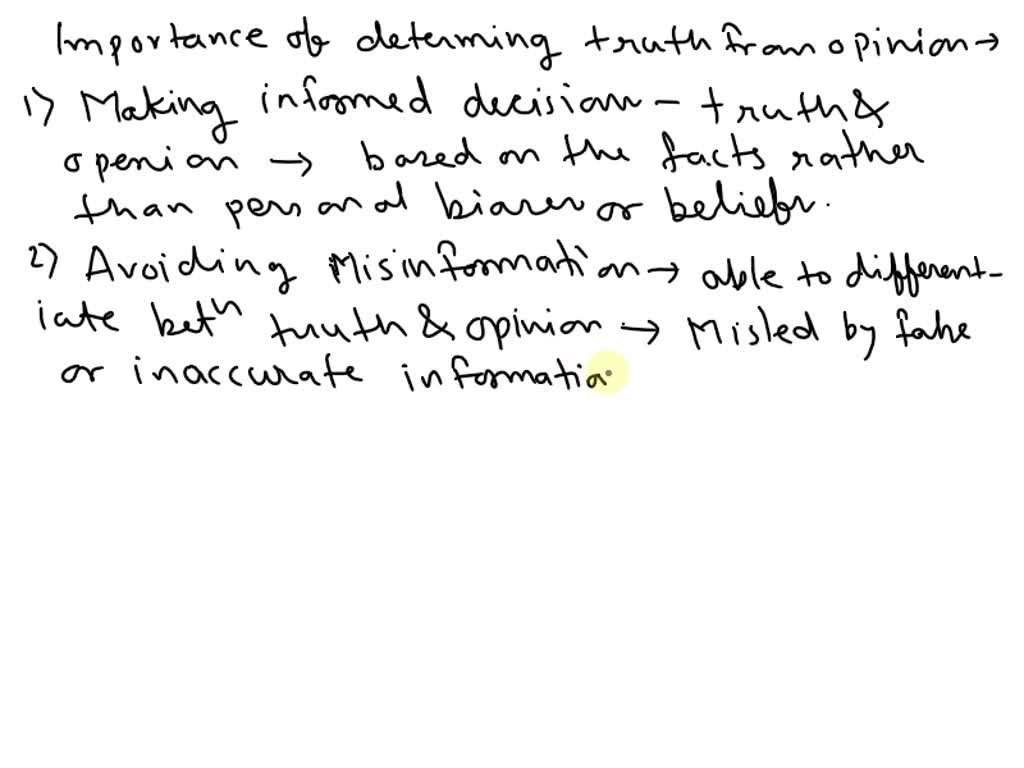 Importance of determing truth from opinion →
1) Making informed decision - truth &
openion → based on the facts rather
than personal biases or beliefs.
2) Avoiding Misinformation → able to different-
iate betn truth & opinion → Misled by fake
or inaccurate informatio